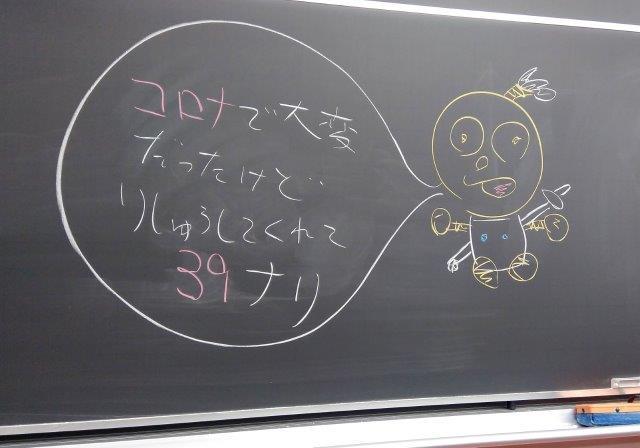 コロナで大変
だったけど‥
りしゅうしてくれて
39ナリ